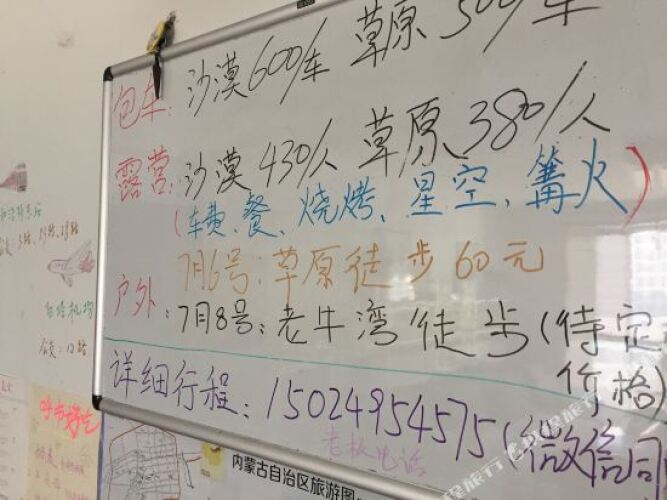 包车: 沙漠600/车 草原500/车
露营: 沙漠430/人 草原380/人
(车费、餐、烧烤、星空、篝火)
户外:
7月6号:草原徒步60元
7月8号:老牛湾徒步(待定
价格)
详细行程:15024954575(微信同
老板电话
白塔机场
内蒙古自治区旅游图
呼市好吃